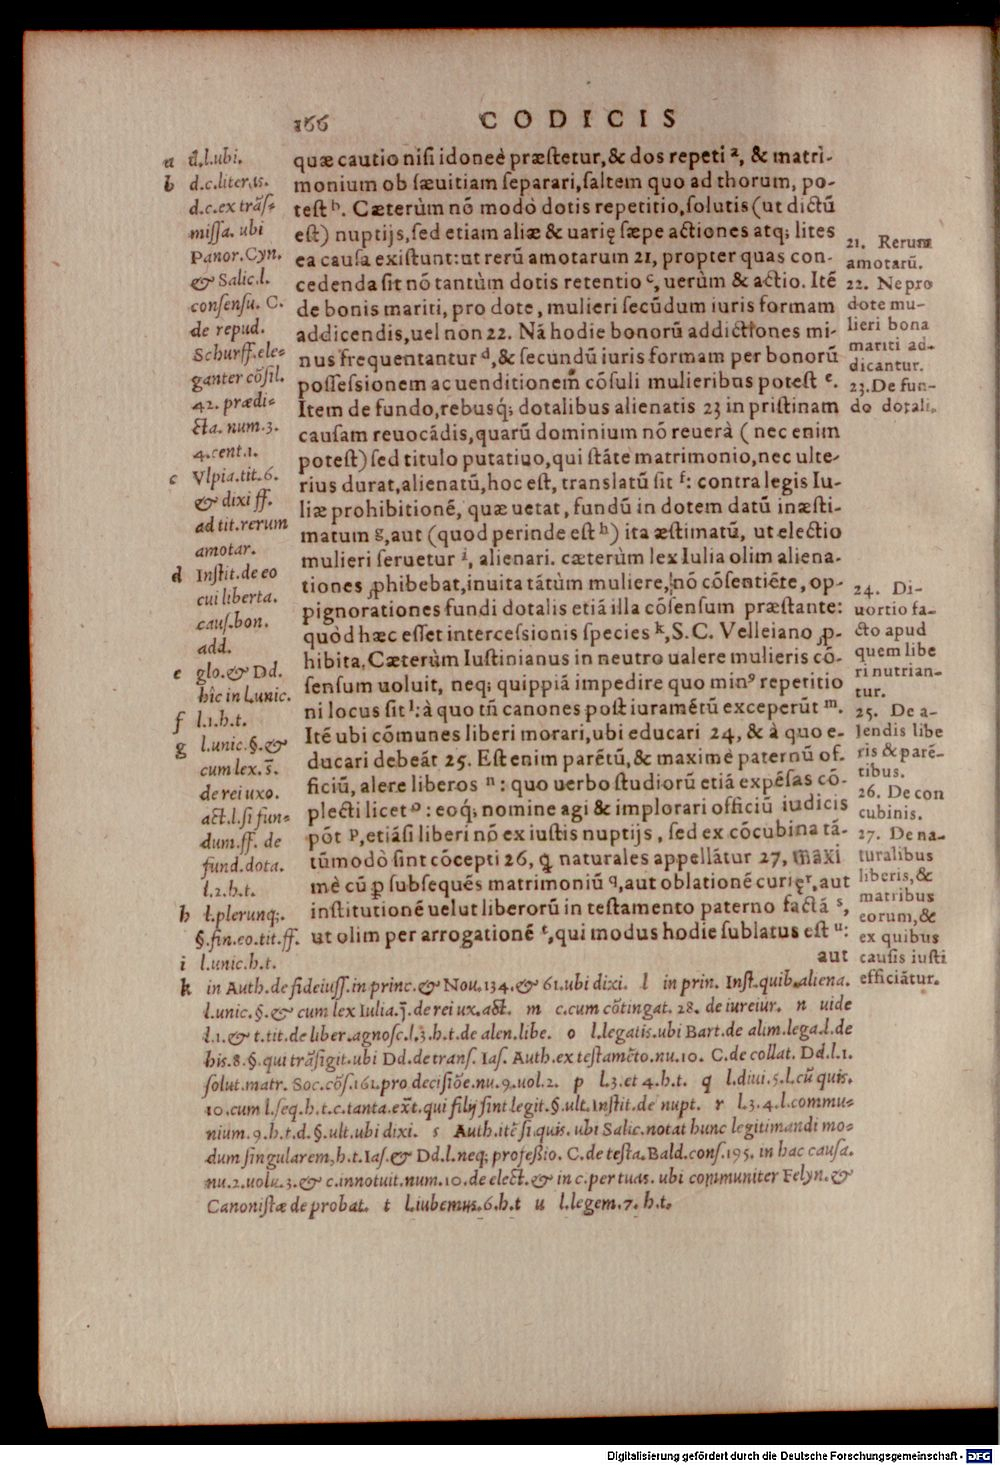 166
CODICIS
quæ cautio nisi idoneè præstetur, & dos repeti ᵃ, & matri-
monium ob sæuitiam separari, saltem quo ad thorum, po-
test ᵇ. Cæterùm nõ modò dotis repetitio, solutis (ut dictũ
est) nuptijs, sed etiam aliæ & uarię sæpe actiones atq; lites
ea causa existunt: ut rerũ amotarum 21, propter quas con-
cedenda sit nõ tantùm dotis retentio ᶜ, uerùm & actio. Itẽ
de bonis mariti, pro dote, mulieri secũdum iuris formam
addicendis, uel non 22. Nã hodie bonorũ addictiones mi-
nus frequentantur ᵈ, & secundũ iuris formam per bonorũ
possessionem ac uenditionem cõsuli mulieribus potest ᵉ.
Item de fundo, rebusq́; dotalibus alienatis 23 in pristinam
causam reuocãdis, quarũ dominium nõ reuerà (nec enim
potest) sed titulo putatiuo, qui stãte matrimonio, nec ulte-
rius durat, alienatũ, hoc est, translatũ sit ᶠ: contra legis Iu-
liæ prohibitionẽ, quæ uetat, fundũ in dotem datũ inæsti-
matum g, aut (quod perinde est ʰ) ita æstimatũ, ut electio
mulieri seruetur ⁱ, alienari. cæterùm lex Iulia olim aliena-
tiones ꝓhibebat, inuita tãtùm muliere, nõ cõsentiẽte, op-
pignorationes fundi dotalis etiã illa cõsensum præstante:
quòd hæc esset intercessionis species ᵏ, S.C. Velleiano ꝓ-
hibita. Cæterùm Iustinianus in neutro ualere mulieris cõ-
sensum uoluit, neq; quippiã impedire quo minꝰ repetitio
ni locus sit ˡ: à quo tñ canones post iuramẽtũ exceperũt ᵐ.
Itẽ ubi cõmunes liberi morari, ubi educari 24, & à quo e-
ducari debeãt 25. Est enim parẽtũ, & maximè paternũ of-
ficiũ, alere liberos ⁿ: quo uerbo studiorũ etiã expẽsas cõ-
plecti licet ᵒ: eoq́; nomine agi & implorari officiũ iudicis
põt ᵖ, etiãsi liberi nõ ex iustis nuptijs, sed ex cõcubina tã-
tũmodò sint cõcepti 26, q̃ naturales appellãtur 27, maxi
mè cũ ꝑ subsequẽs matrimoniũ ᑫ, aut oblationẽ curię ʳ, aut
institutionẽ uelut liberorũ in testamento paterno factã ˢ,
ut olim per arrogationẽ ᵗ, qui modus hodie sublatus est ᵘ:
aut
a d.l.ubi.
b d.c.literas.
d.c.ex trãs-
missa. ubi
Panor. Cyn.
& Salic.l.
consensu. C.
de repud.
Schurff.ele-
ganter cõsil.
42. prædi-
cta. num.3.
4.cent.1.
c Vlpia.tit.6.
& dixi ff.
ad tit.rerum
amotar.
d Instit.de eo
cui liberta.
caus.bon.
add.
e glo.& Dd.
hîc in l.unic.
f l.1.h.t.
g l.unic.§.&
cum lex.5̃.
de rei uxo.
act.l.si fun-
dum.ff. de
fund.dota.
l.2.h.t.
h l.plerunq;.
§.fin.eo.tit.ff.
i l.unic.h.t.
21. Rerum
amotarũ.
22. Ne pro
dote mu-
lieri bona
mariti ad-
dicantur.
23. De fun-
do dotali.
24. Di-
uortio fa-
cto apud
quem libe
ri nutrian-
tur.
25. De a-
lendis libe
ris & parẽ-
tibus.
26. De con
cubinis.
27. De na-
turalibus
liberis, &
matribus
eorum, &
ex quibus
causis iusti
efficiãtur.
k in Auth.de fideiuss.in princ.& Nou.134.& 61.ubi dixi. l in prin. Inst.quib.aliena.
l.unic.§.& cum lex Iulia.j̃.de rei ux.act. m c.cum cõtingat.28. de iureiur. n uide
l.1.& t.tit.de liber.agnosc.l.3.h.t.de alen.libe. o l.legatis.ubi Bart.de alim.lega.l.de
his.8.§.qui trãsigit.ubi Dd.de trans. Ias. Auth.ex testamẽto.nu.10. C.de collat. Dd.l.1.
solut.matr. Soc.cõs.161.pro decisiõe.nu.9.uol.2. p l.3.et 4.h.t. q l.diui.5.l.cũ quis.
10.cum l.seq.h.t.c.tanta.ext̃.qui filij sint legit.§.ult.Instit.de nupt. r l.3.4.l.commu-
nium.9.h.t.d.§.ult.ubi dixi. s Auth.itẽ si quis. ubi Salic.notat hunc legitimandi mo-
dum singularem, h.t.Ias.& Dd.l.neq; professio. C.de testa.Bald.cons.195. in hac causa.
nu.2.uolu.3.& c.innotuit.num.10.de elect.& in c.per tuas. ubi communiter Felyn.&
Canonistæ de probat. t l.iubemus.6.h.t u l.legem.7. h.t.
Digitalisierung gefördert durch die Deutsche Forschungsgemeinschaft - DFG